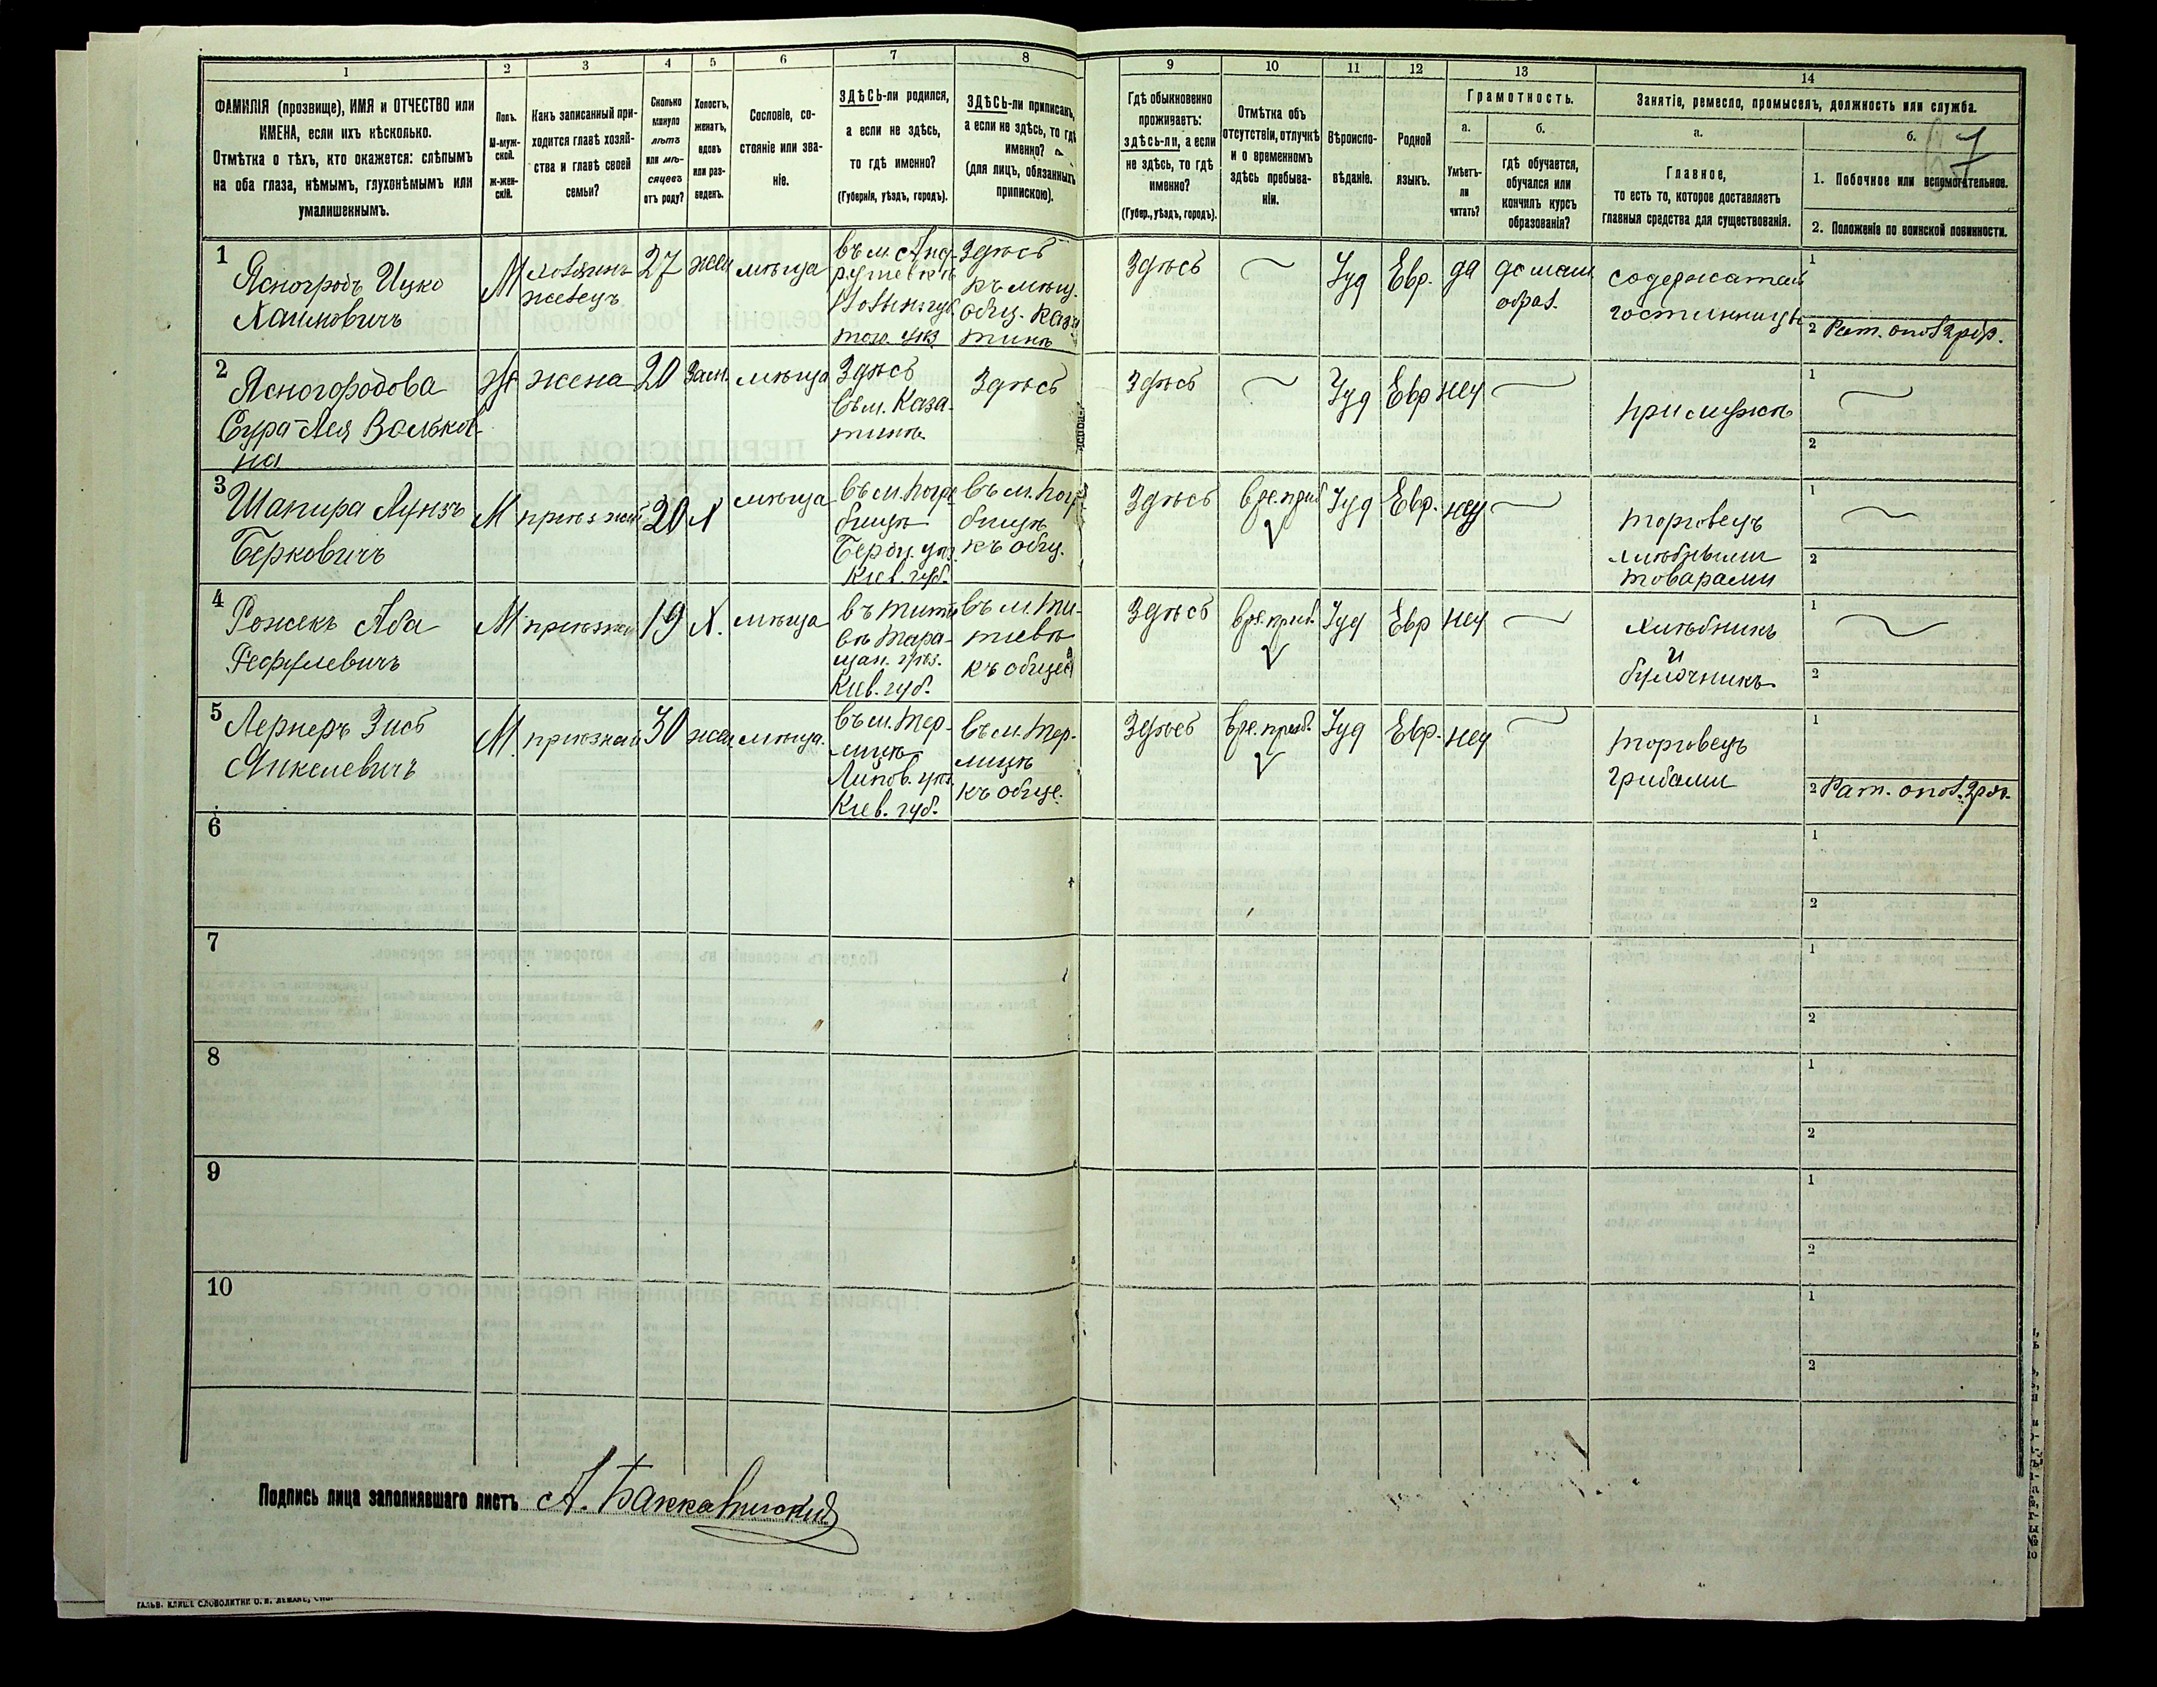 1 2 3 4 5 6 7 8 9 10 11 12 13 14
ФАМИЛІЯ (прозвище), ИМЯ и ОТЧЕСТВО или
ИМЕНА, если ихъ нѣсколько.
Отмѣтка о тѣхъ, кто окажется: слѣпымъ
на оба глаза, нѣмымъ, глухонѣмымъ или
умалишеннымъ.
Полъ.
М-муж-
ской.
Ж-жен-
скій.
Какъ записанный при-
ходится главѣ хозяй-
ства и главѣ своей
семьи?
Сколько
минуло
лѣтъ
или мѣ-
сяцевъ
отъ роду?
Холостъ,
женатъ,
вдовъ
или раз-
веденъ.
Сословіе, со-
стояніе или зва-
ніе.
ЗДѢСЬ-ли родился,
а если не здѣсь,
то гдѣ именно?
(Губернія, уѣздъ, городъ).
ЗДѢСЬ-ли приписанъ,
а если не здѣсь, то гдѣ
именно?
(для лицъ, обязанныхъ
припискою).
Гдѣ обыкновенно
проживаетъ:
здѣсь-ли, а если
не здѣсь, то гдѣ
именно?
(Губер., уѣздъ, городъ).
Отмѣтка объ
отсутствіи, отлучкѣ
и о временномъ
здѣсь пребыва-
ніи.
Вѣроиспо-
вѣданіе.
Родной
языкъ.
Грамотность.
а.
Умѣетъ-
ли
читать?
б.
гдѣ обучается,
обучался или
кончилъ курсъ
образованія?
Занятіе, ремесло, промыселъ, должность или служба.
а.
Главное,
то есть то, которое доставляетъ
главныя средства для существованія.
б.
7
1. Побочное или вспомогательное.
2. Положеніе по воинской повинности.
1
Ясногродъ Ицко
Хаимовичъ
М
хозяинъ
27
жен
мѣща
въ м. Анд-
рушевкѣ
Волынс губ.
Здѣсь
къ мѣщ.
общ. Каза
тинъ
Здѣсь
Іуд
Евр.
да
домаш.
образ.
содержатель
гостинницы
1
2 Рат. опол. 2 разр.
2
Ясногородова
Сура-Лея Вольков-
на
Ж
жена
20
Зам.
мѣща
Здѣсь
въ м. Каза-
тинѣ
Здѣсь
Здѣсь
Іуд
Евр
нет
при мужѣ
1
2
3
Шапира Лунзъ
Берковичъ
М
пріѣзжій
20
Х
мѣща
въ м. Погре
бищѣ
Берди. уѣз.
Кіев. губ.
въ м. Погр.
бищѣ
къ общ.
Здѣсь
вре. преб
Іуд
Евр.
нет
торговецъ
хлѣбными
товарами
1
2
4
Рожекъ Аба
М
пріѣзжій
19
Х.
мѣща
въ Тити
вѣ Тара-
щан. уѣз.
Кіев. губ.
въ м. Ти-
тіевѣ
къ общес
Здѣсь
вре. преб.
Іуд
Евр
нет
Хлѣбникъ
и
булочникъ
1
2
5
Лернеръ Зись
Янкелевичъ
М.
пріѣзжій
30
жен
мѣща.
въ м. Тер-
лицѣ
Липов. уѣз.
Кіев. губ.
въ м. Тер-
лицѣ
къ обще.
Здѣсь
вре. преб.
Іуд
Евр.
нет
торговецъ
грибами
1
2 Рат. опол. 2 раз.
6
1
2
7
1
2
8
1
2
9
1
2
10
1
2
Подпись лица заполнявшаго листъ